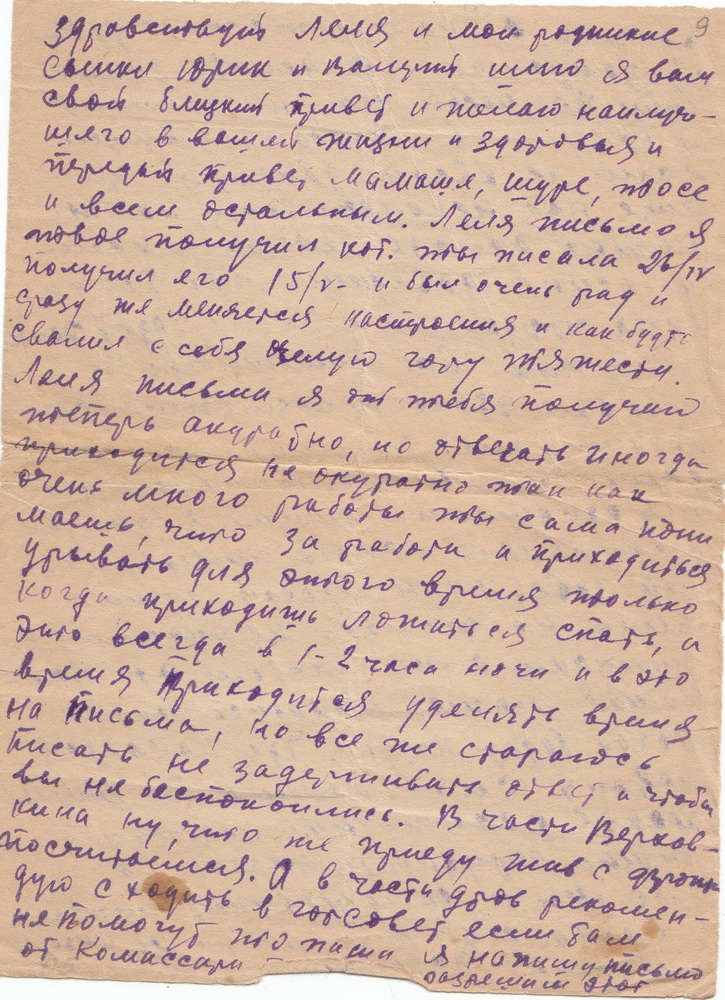 9
Здравствуй Леля и мои роднинкие
сынки Юрик и Валущий шлю я вам
свой блицкий привет и желаю наилуч-
шего в вашей жизни и здоровья и
передай привет мамаше, шуре, тосе
и всем остальным. Леля письмо я
твое получил кот. ты писала 26/IV
получил его 15/V- и был очень рад и
сразу же меняется настроения и как будто
свалил с себя целую гору тяжести.
Леля письма я от тебя получаю
теперь акуратно, но отвечать иногда
приходится не окуратно так как
очень много работы ты сама пони
маешь, что за работа и приходиться
урывать для этого время только
когда приходишь ложиться спать, а
это всегда в 1-2 часа ночи и в это
время приходится уделять время
на письма, но все же стараюсь
писать не задерживать ответ и чтобы
вы не беспокоились. В части Верхов-
кина ну, что же приеду жив с фронта
посчитаемся. А в части дров рекомен-
дую сходить в горсовет если там
не помогут то пиши я напишу письмо
от Комиссара
разрешат этот